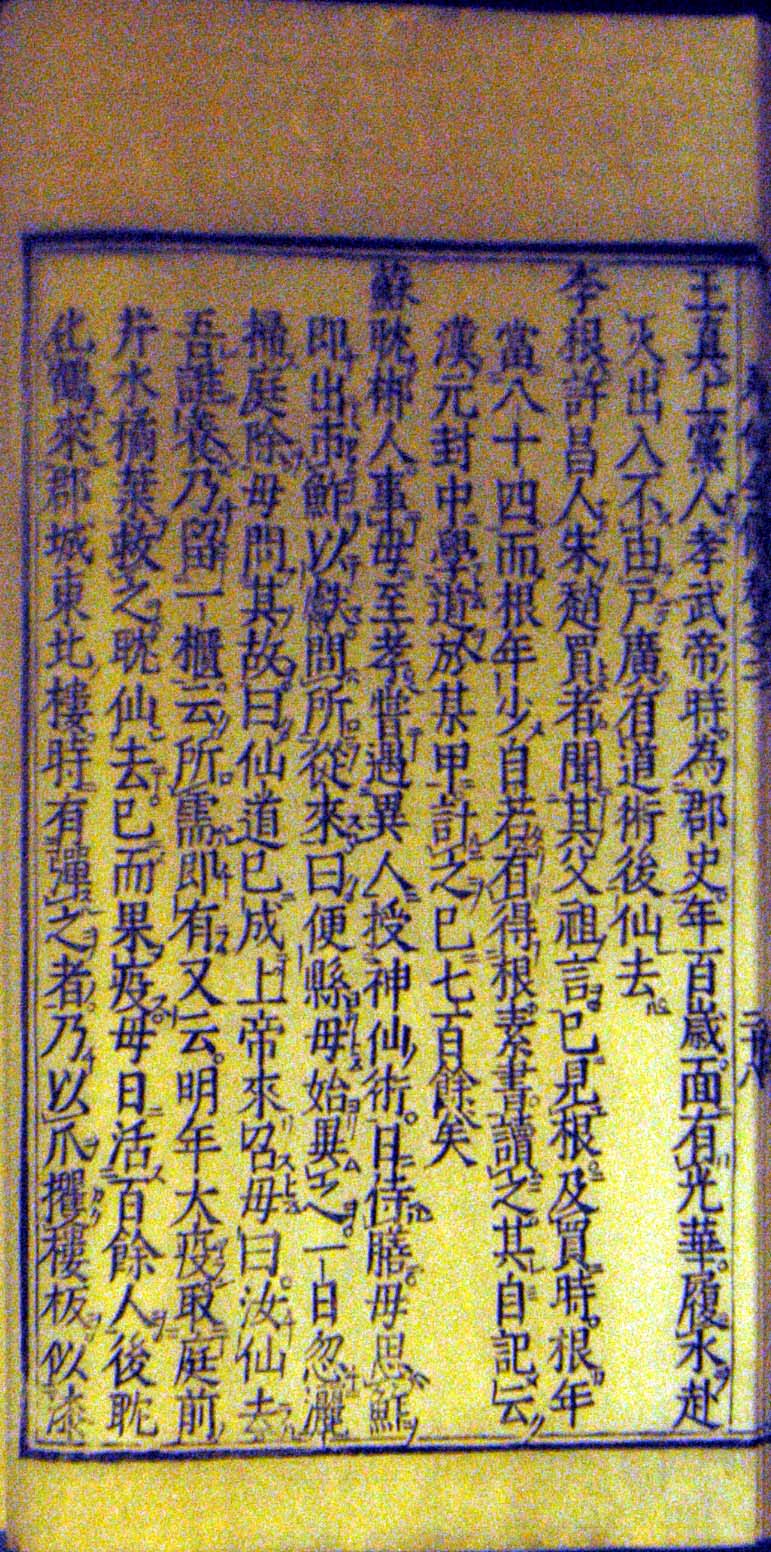 王真上黨人孝武帝時為郡史年百歲面有光華履水赴
火出入不由戶廣有道術後仙去
李根許昌人朱趙買者聞其父祖言已見根及買時根年
當八十四而根年少自若有得根素書讀之其自記云
漢元封中學道於某甲計之已七百餘矣
蘇耽郴人事母至孝嘗遇異人授神仙術日侍膳母思鮓
即出市鮓以獻問所從來曰便縣母始異之一日忽灑
掃庭除母問其故曰仙道已成上帝來召母曰汝仙去
吾誰養乃留一櫃云所需即有又云明年大疫取庭前
井水橘葉救之耽仙去已而果疫母日活百餘人後耽
化鶴來郡城東北樓時有彈之者乃以爪攫樓板似漆